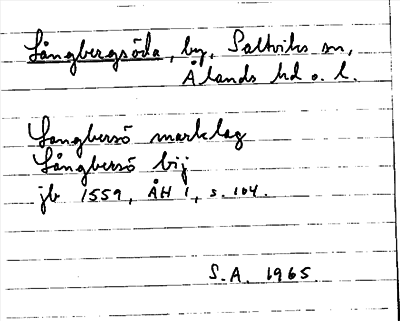 Långbergsöda, by, Saltviks sn,
Ålands hd o. l.
Langbersö marklag
Långbersö bij
jb 1559, ÅH 1, s. 104.
S.A. 1965